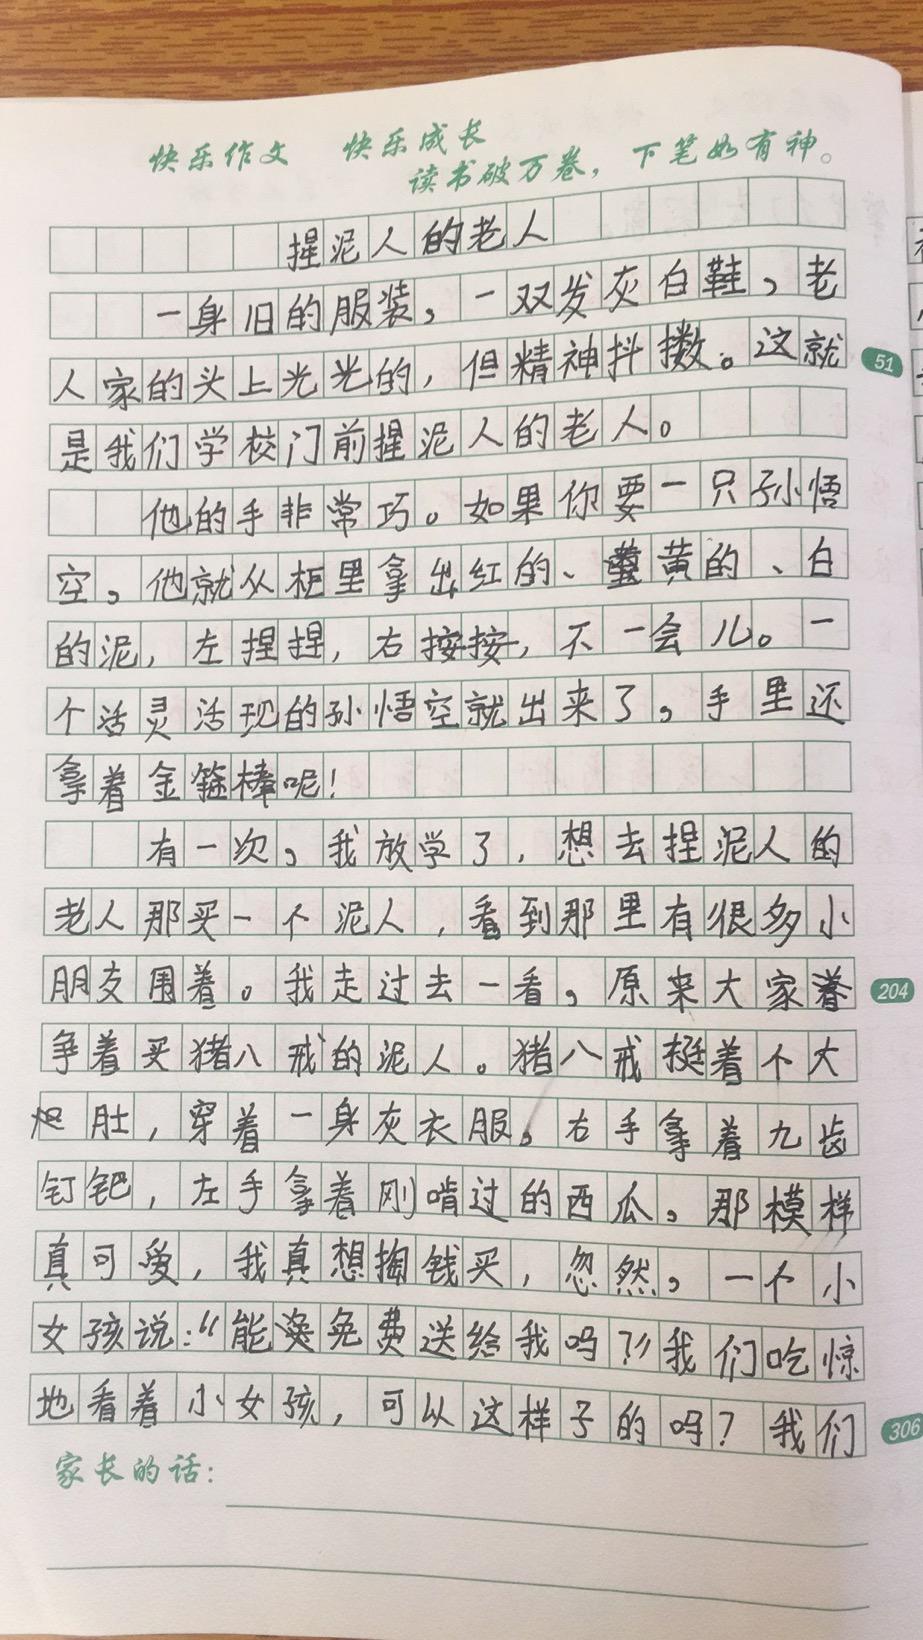 快乐作文 快乐成长
读书破万卷，下笔如有神。
捏泥人的老人
一身旧的服装，一双发灰白鞋，老
人家的头上光光的，但精神抖擞。这就
51
是我们学校门前捏泥人的老人。
他的手非常巧。如果你要一只孙悟
空，他就从柜里拿出红的、黄的、白
的泥，左捏捏，右按按，不一会儿。一
个活灵活现的孙悟空就出来了，手里还
拿着金箍棒呢！
有一次，我放学了，想去捏泥人的
老人那买一个泥人，看到那里有很多小
朋友围着。我走过去一看，原来大家
204
争着买猪八戒的泥人。猪八戒挺着个大
肚，穿着一身灰衣服。右手拿着九齿
钉钯，左手拿着刚啃过的西瓜，那模样
真可爱，我真想掏钱买，忽然，一个小
女孩说：“能免费送给我吗？”我们吃惊
地看着小女孩，可以这样子的吗？我们
306
家长的话：